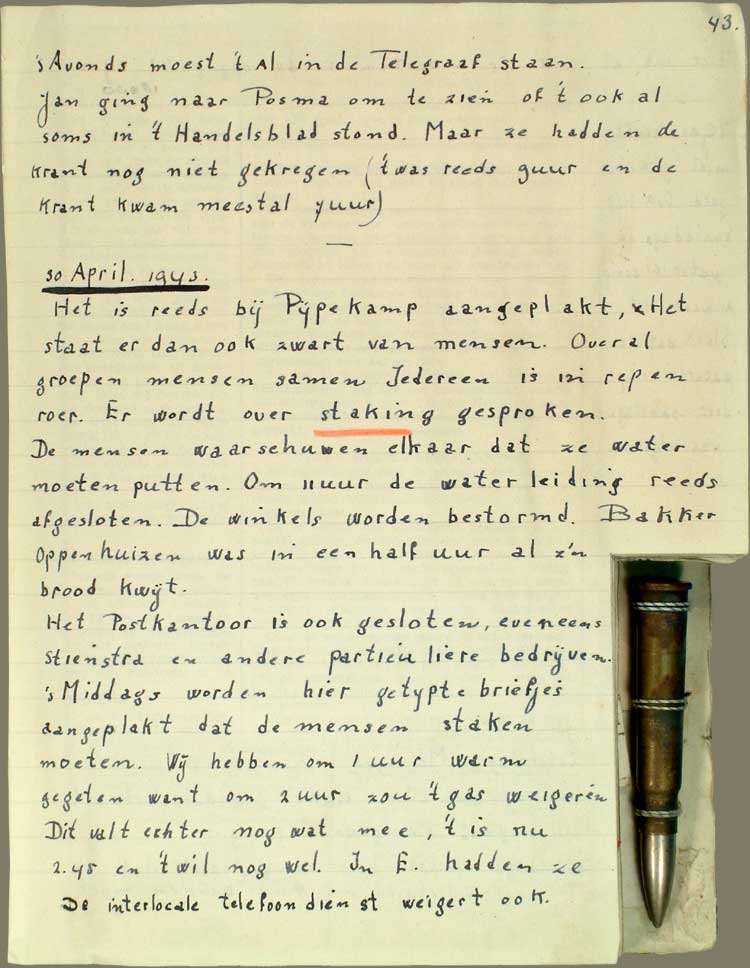 43.
'sAvonds moest 't Al in de Telegraaf staan.
Jan ging naar Posma om te zien of 't ook al
soms in 't Handelsblad stond. Maar ze hadden de
krant nog niet gekregen ('t was reeds 9uur en de
krant kwam meestal 7uur)
30 April. 1943.
Het is reeds bij Pijpekamp aangeplakt, Het
staat er dan ook zwart van mensen. Overal
groepen mensen samen Iedereen is in rep en
roer. Er wordt over staking gesproken.
De mensen waarschuwen elkaar dat ze water
moeten putten. Om 11uur de waterleiding reeds
afgesloten. De winkels worden bestormd. Bakker
Oppenhuizen was in een half uur al z'n
brood kwijt.
Het Postkantoor is ook gesloten, eveneens
Stienstra en andere particuliere bedrijven.
'sMiddags worden hier getypte briefjes
aangeplakt dat de mensen staken
moeten. Wij hebben om 1 uur warm
gegeten want om 2 uur zou 't gas weigeren
Dit valt echter nog wat mee, 't is nu
2.45 en 't wil nog wel. In E. hadden ze
De interlocale telefoondienst weigert ook.